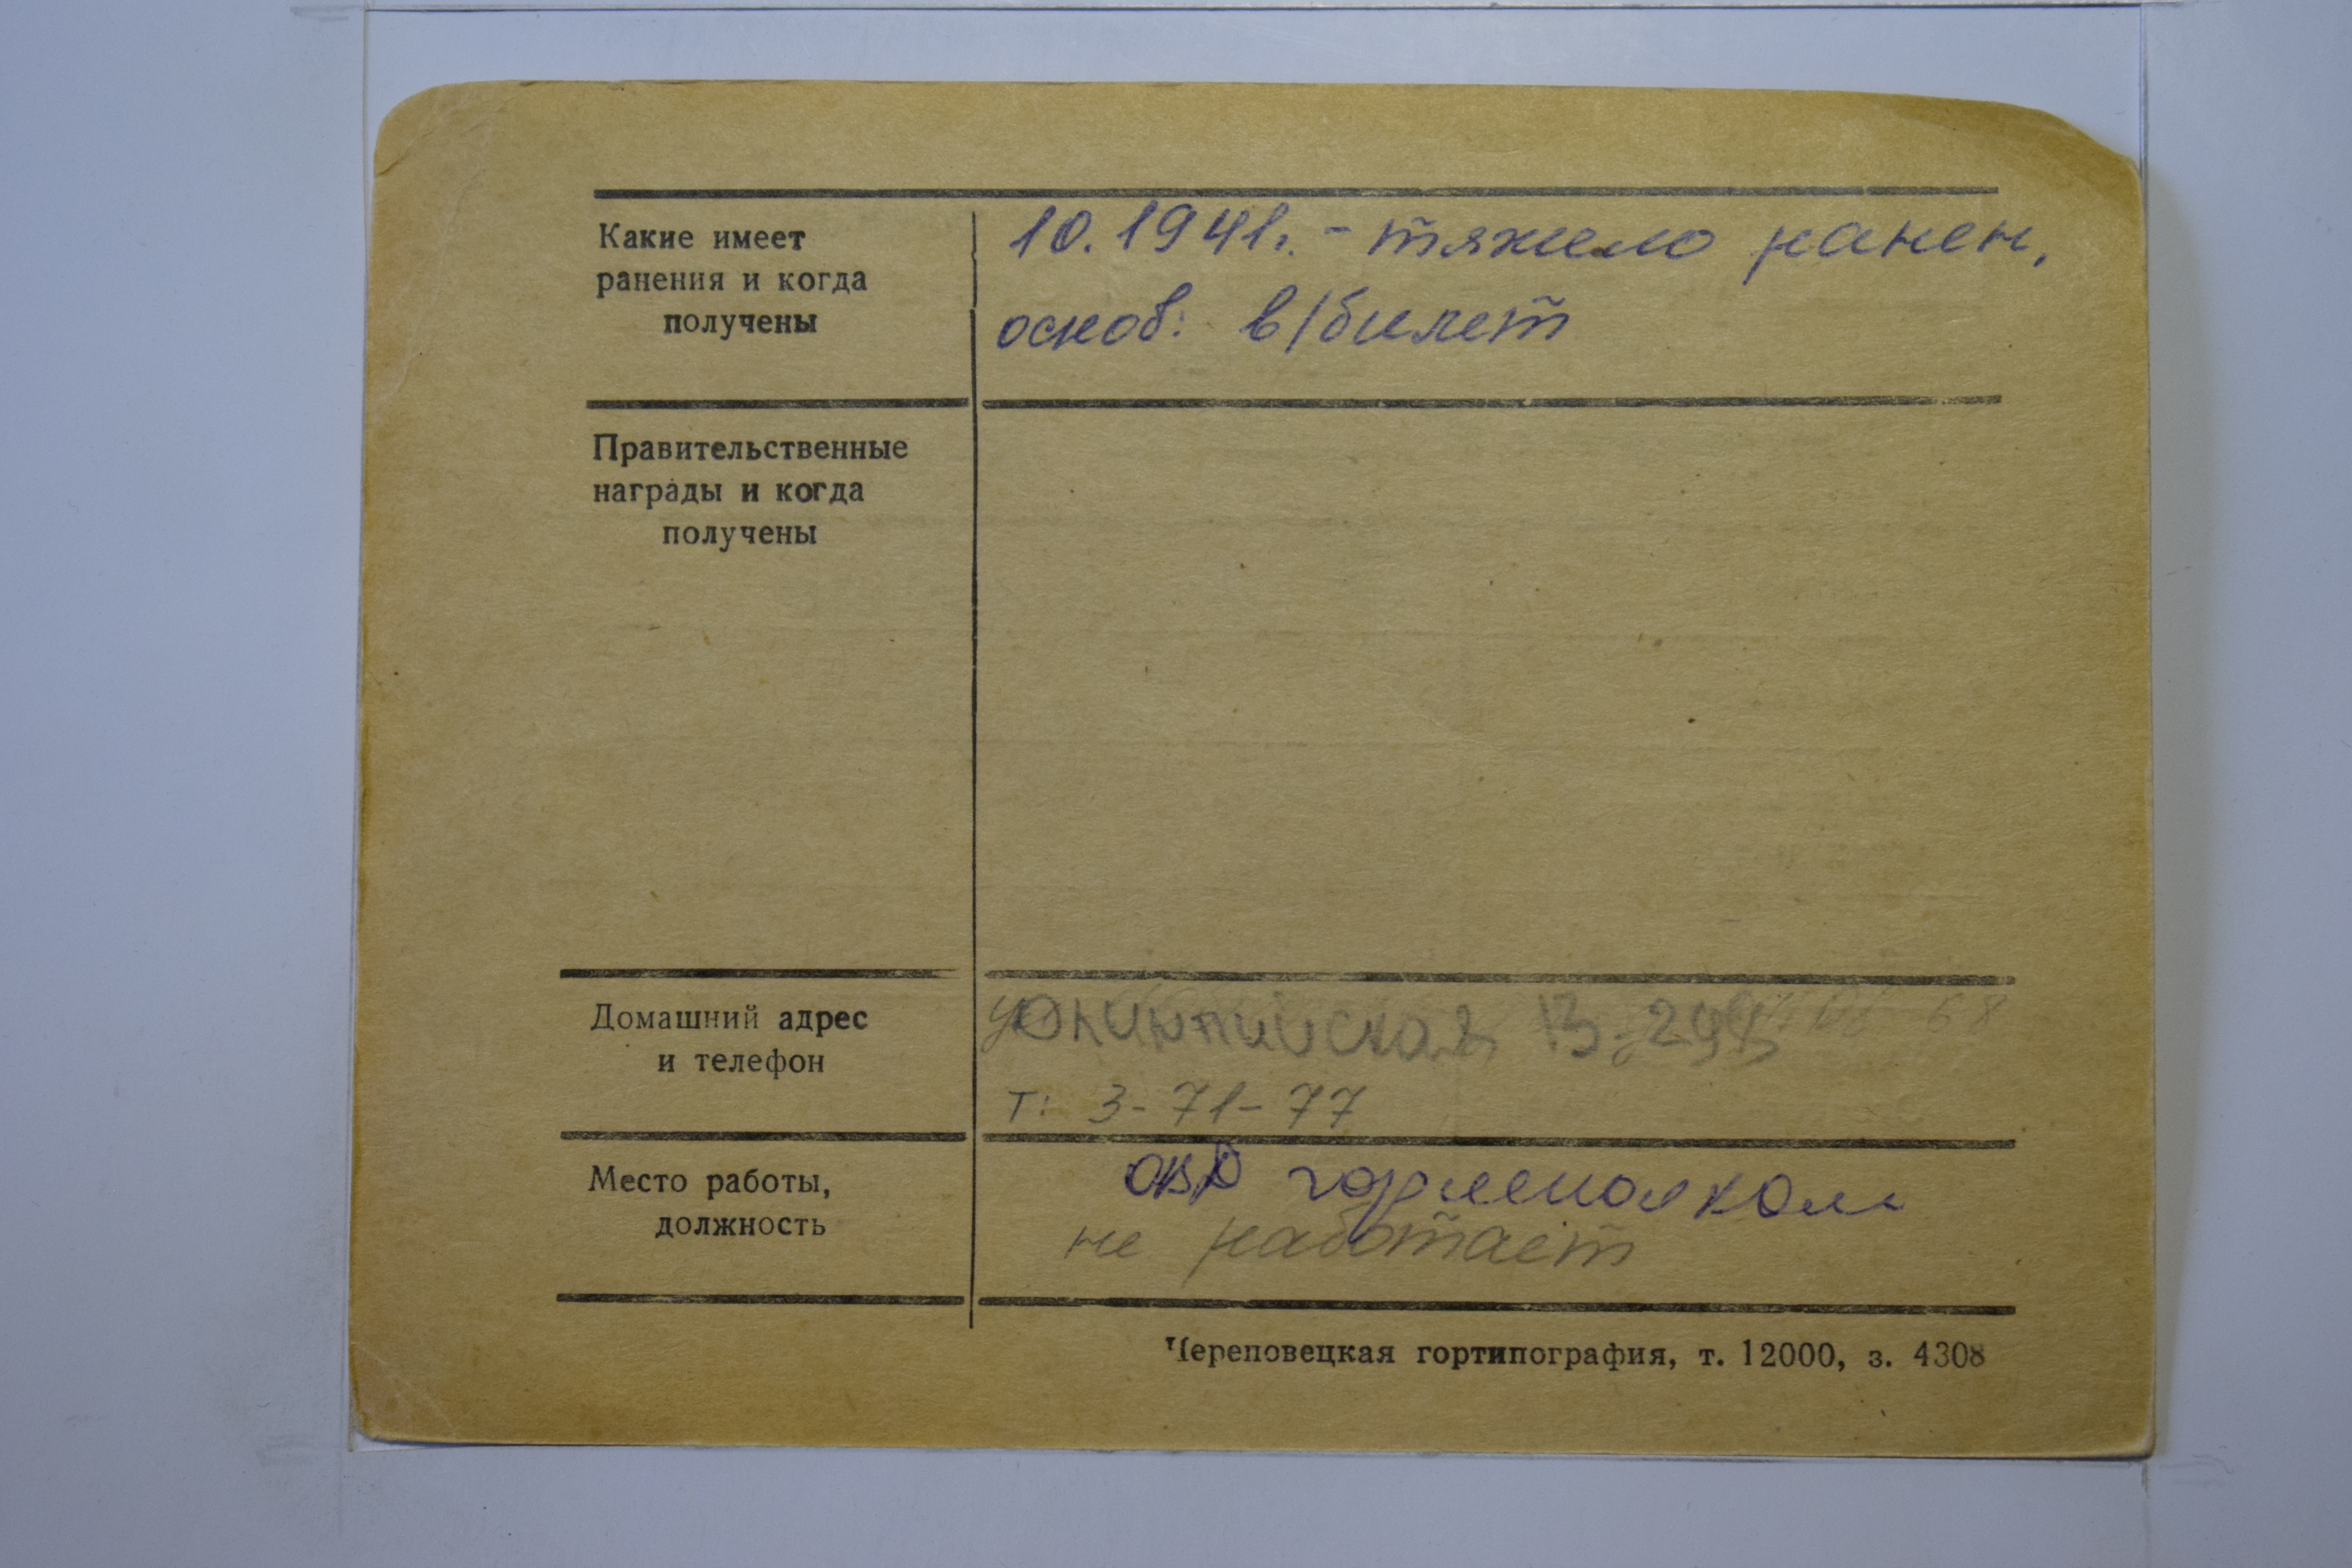 Какие имеет
ранения и когда
получены
10.1941г. - тяжело ранен,
основ: в/билет
Правительственные
награды и когда
получены
Домашний адрес
и телефон
т: 3-71-77
Место работы,
должность
не работает
Череповецкая гортипография, т. 12000, з. 4308